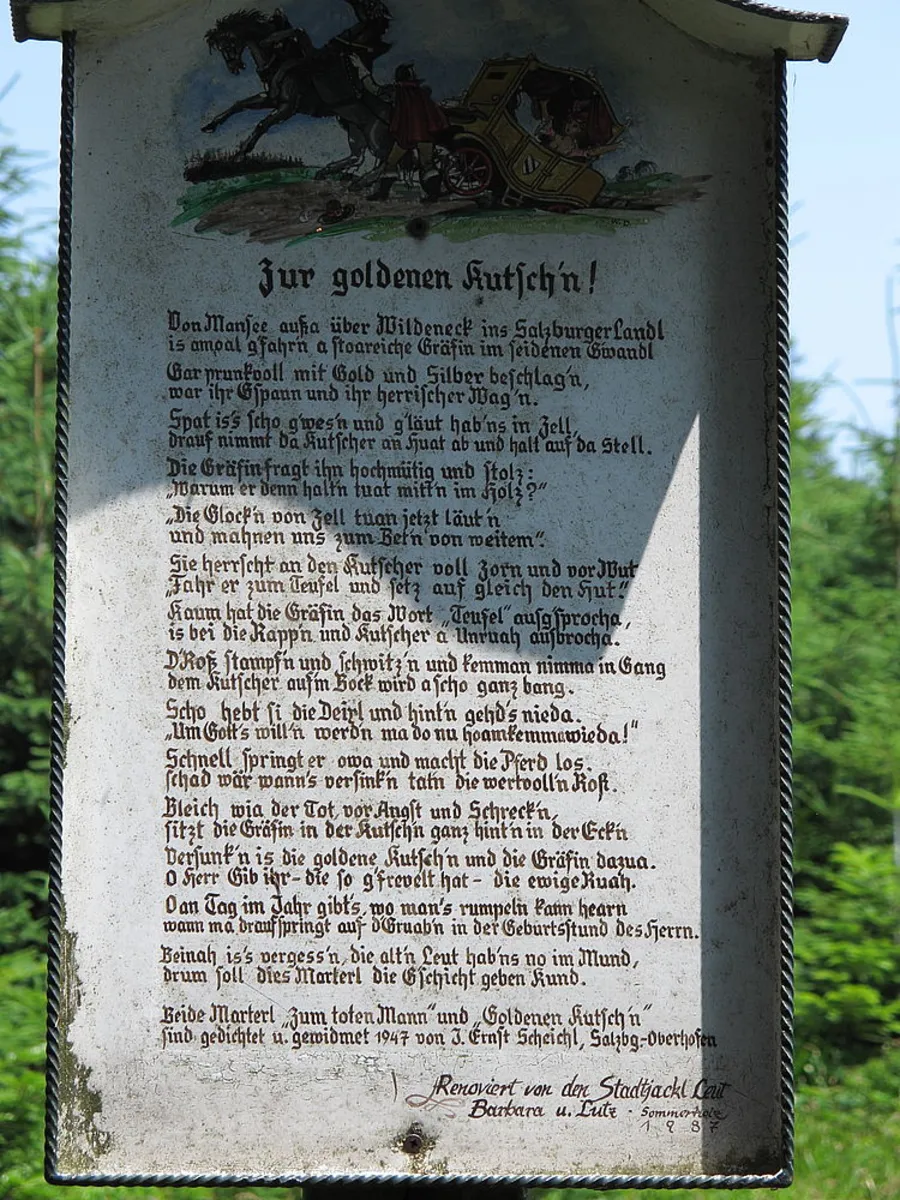 Zur goldenen Kutsch'n!
Von Mansee außa über Wildeneck ins Salzburger Landl
is amoal gfahrn a stoareiche Gräfin im seidenen Gwandl
Gar prunkvoll mit Gold und Silber beschlag'n,
war ihr Gspann und ihr herrischer Wag'n.
Spat is's scho g'wes'n und g'läut hab'ns in Zell,
drauf nimmt da Kutscher an Huat ab und halt auf da Stell.
Die Gräfin fragt ihn hochmütig und stolz:
„Warum er denn halt'n tuat mitt'n im Holz?"
„Die Glock'n von Zell tuan jetzt läut'n
und mahnen uns zum Bet'n von weitem".
Sie herrscht an den Kutscher voll Zorn und vor Wut
„Fahr er zum Teufel und setz auf gleich den Hut."
Kaum hat die Gräfin das Wort „Teufel" ausg'sprocha,
is bei die Rapp'n und Kutscher a Unruah ausbrocha.
D'Roß stampf'n und schwitz'n und kemman nimma in Gang
dem Kutscher auf'm Bock wird a scho ganz bang.
Scho hebt si die Deixl und hint'n gehd's nieda.
„Um Gott's will'n werd'n ma do nu hoamkemma wieda!"
Schnell springt er owa und macht die Pferd los.
schad wär wann's versink'n tat'n die wertvoll'n Roß.
Bleich wia der Tot, vor Angst und Schreck'n,
sitzt die Gräfin in der Kutsch'n ganz hint'n in der Eck'n
Versunk'n is die goldene Kutsch'n und die Gräfin dazua.
O Herr Gib ihr - die so g'frevelt hat - die ewige Ruah.
Oan Tag im Jahr gibt's, wo man's rumpeln kann hearn
wann ma drauf springt auf d'Gruab'n in der Geburtsstund des Herrn.
Beinah is's vergess'n, die alt'n Leut hab'ns no im Mund,
drum soll dies Marterl die Gschicht geben Kund.
Beide Marterl „Zum toten Mann" und „Goldenen Kutsch'n"
sind gedichtet u. gewidmet 1947 von J. Ernst Scheichl, Salzbg-Oberhofen
Renoviert von den Stadtjackl Leut
Barbara u. Lutz - Sommerholz
1987